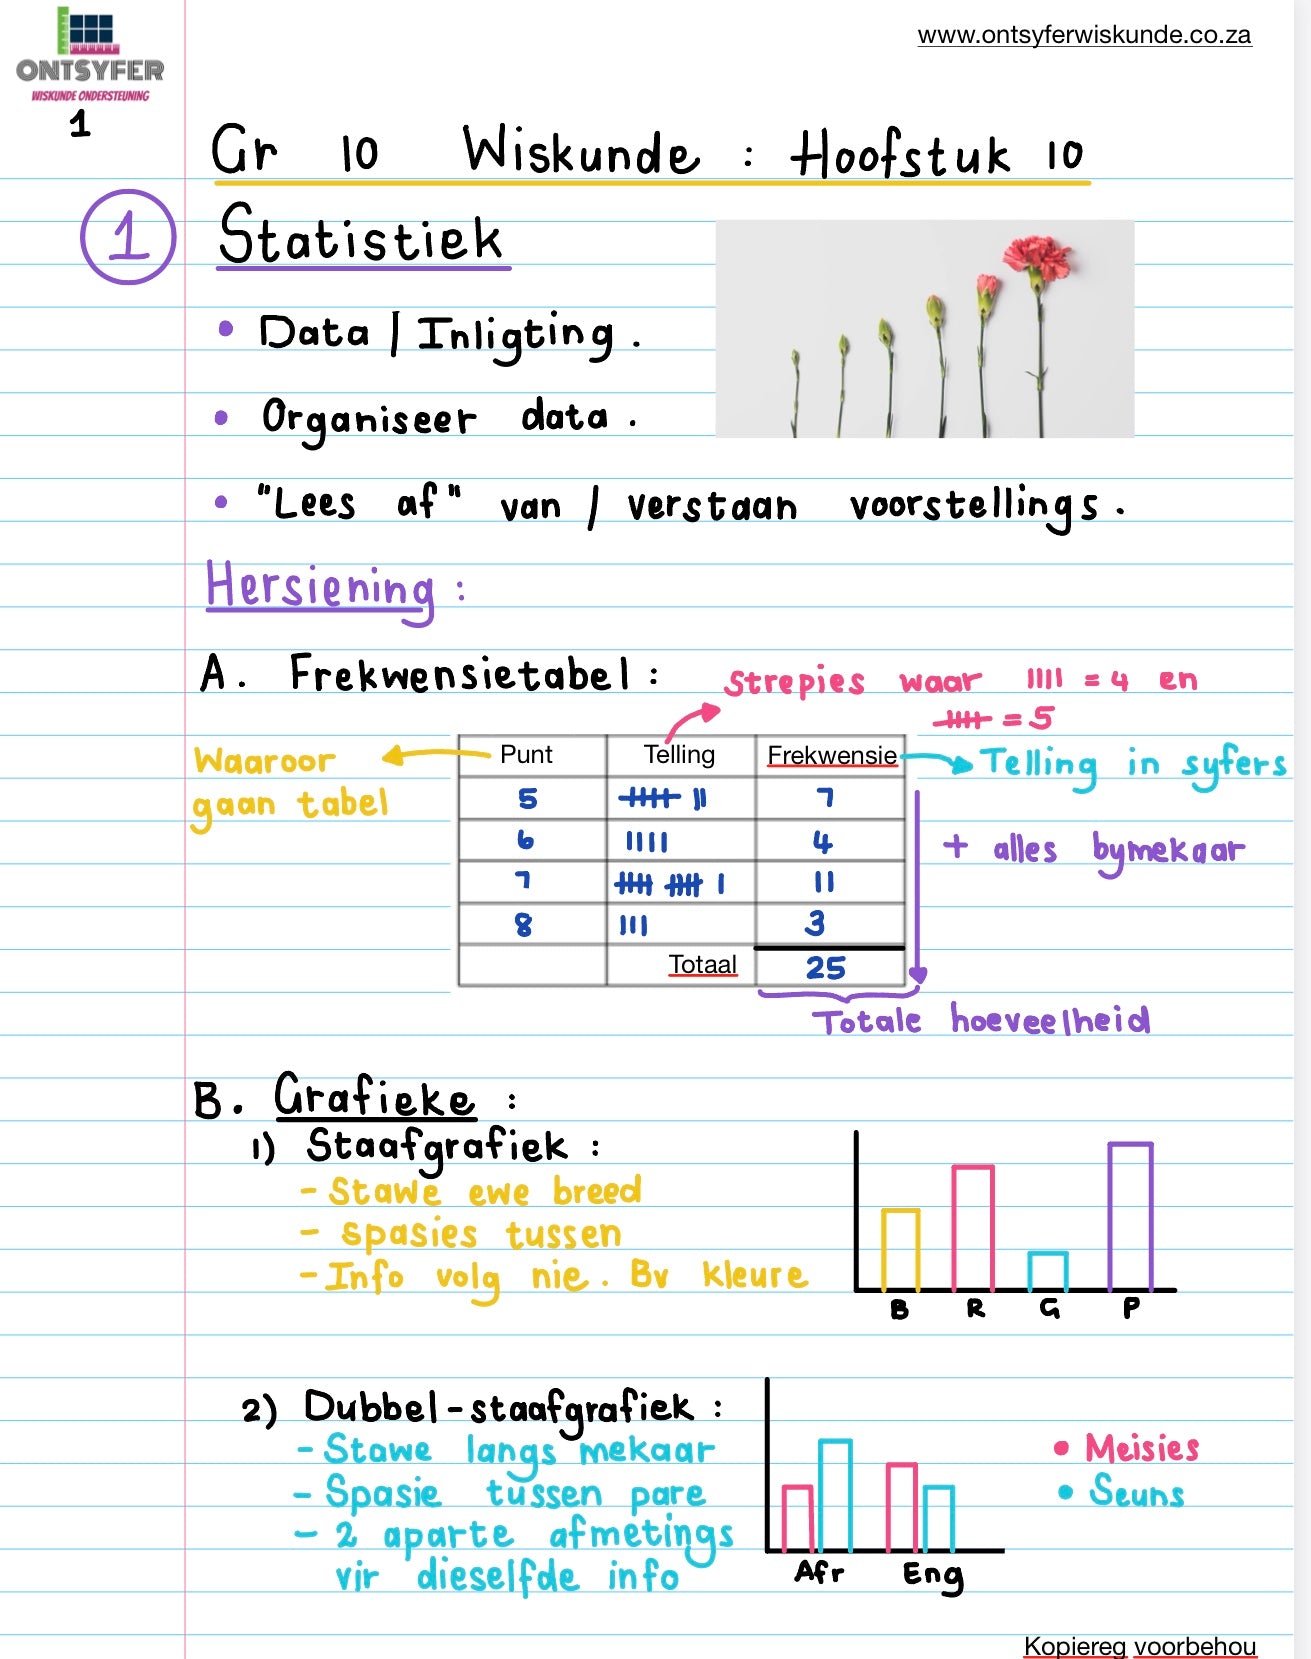 www.ontsyferwiskunde.co.za
ONTSYFER
WISKUNDE ONDERSTEUNING
1
Gr 10 Wiskunde : Hoofstuk 10
1 Statistiek
• Data / Inligting.
• Organiseer data.
• "Lees af" van / verstaan voorstellings.
Hersiening :
A. Frekwensietabel :
Strepies waar |||| = 4 en
卌 = 5
Waaroor
gaan tabel
Punt Telling Frekwensie
Telling in syfers
5 卌 || 7
6 |||| 4
+ alles bymekaar
7 卌 卌 | 11
8 ||| 3
Totaal 25
Totale hoeveelheid
B. Grafieke :
1) Staafgrafiek :
- Stawe ewe breed
- spasies tussen
- Info volg nie. Bv kleure
B R G P
2) Dubbel-staafgrafiek :
- Stawe langs mekaar
- Spasie tussen pare
- 2 aparte afmetings
vir dieselfde info
• Meisies
• Seuns
Afr Eng
Kopiereg voorbehou